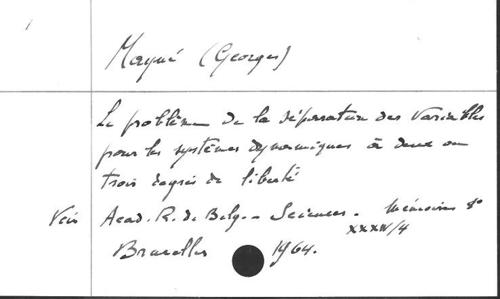 Mayné (Georges)
Le problème de la séparation des variables
pour les systèmes dynamiques à deux ou
trois degrés de liberté
Voir Acad. R. de Belg. - Sciences. Mémoires 8°
XXXIV/4
Bruxelles 1964.